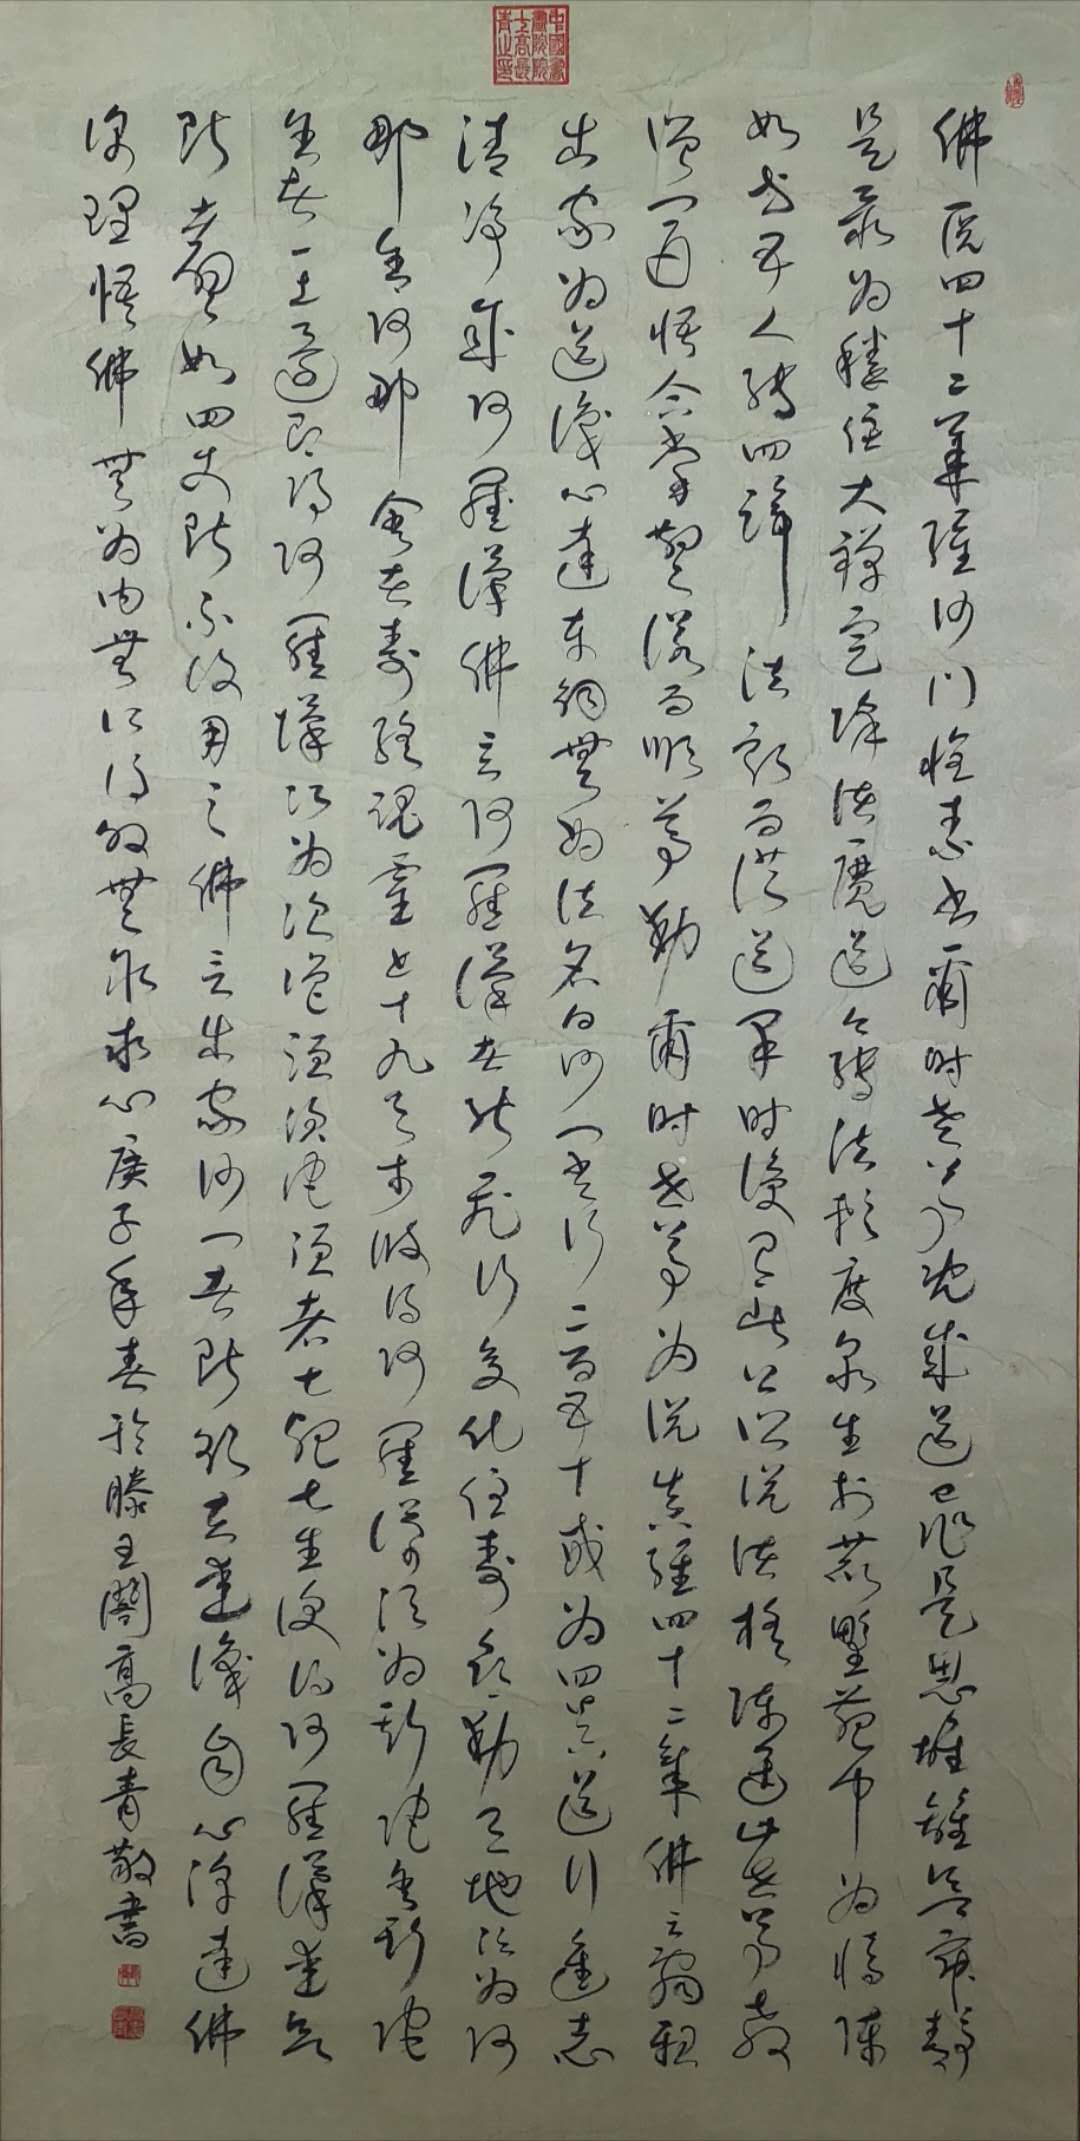 佛说四十二章经沙门怀素书尔时世尊既成道已作是思惟离欲寂静
是最为胜住大禅定降诸魔道今转法轮度众生于鹿野苑中为憍陈
如等五人转四谛法轮而证道果时复有比丘所说诸疑陈进止世尊教
诏一一开悟合掌敬诺而顺尊勅尔时世尊为说真经四十二章佛言辞亲
出家为道识心达本解无为法名曰沙门常行二百五十戒为四真道行进志
清净成阿罗汉佛言阿罗汉者能飞行变化住寿命动天地次为阿
那含阿那含者寿终魂灵上十九天于彼得阿罗汉次为斯陀含斯陀
含者一上一还即得阿罗汉次为须陀洹须陀洹者七死七生便得阿罗汉爱欲
断者譬如四支断不复用之佛言出家沙门者断欲去爱识自心源达佛
深理悟佛无为内无所得外无所求心庚子年春於滕王阁高长青敬书
中國書畫院院士高長青之印